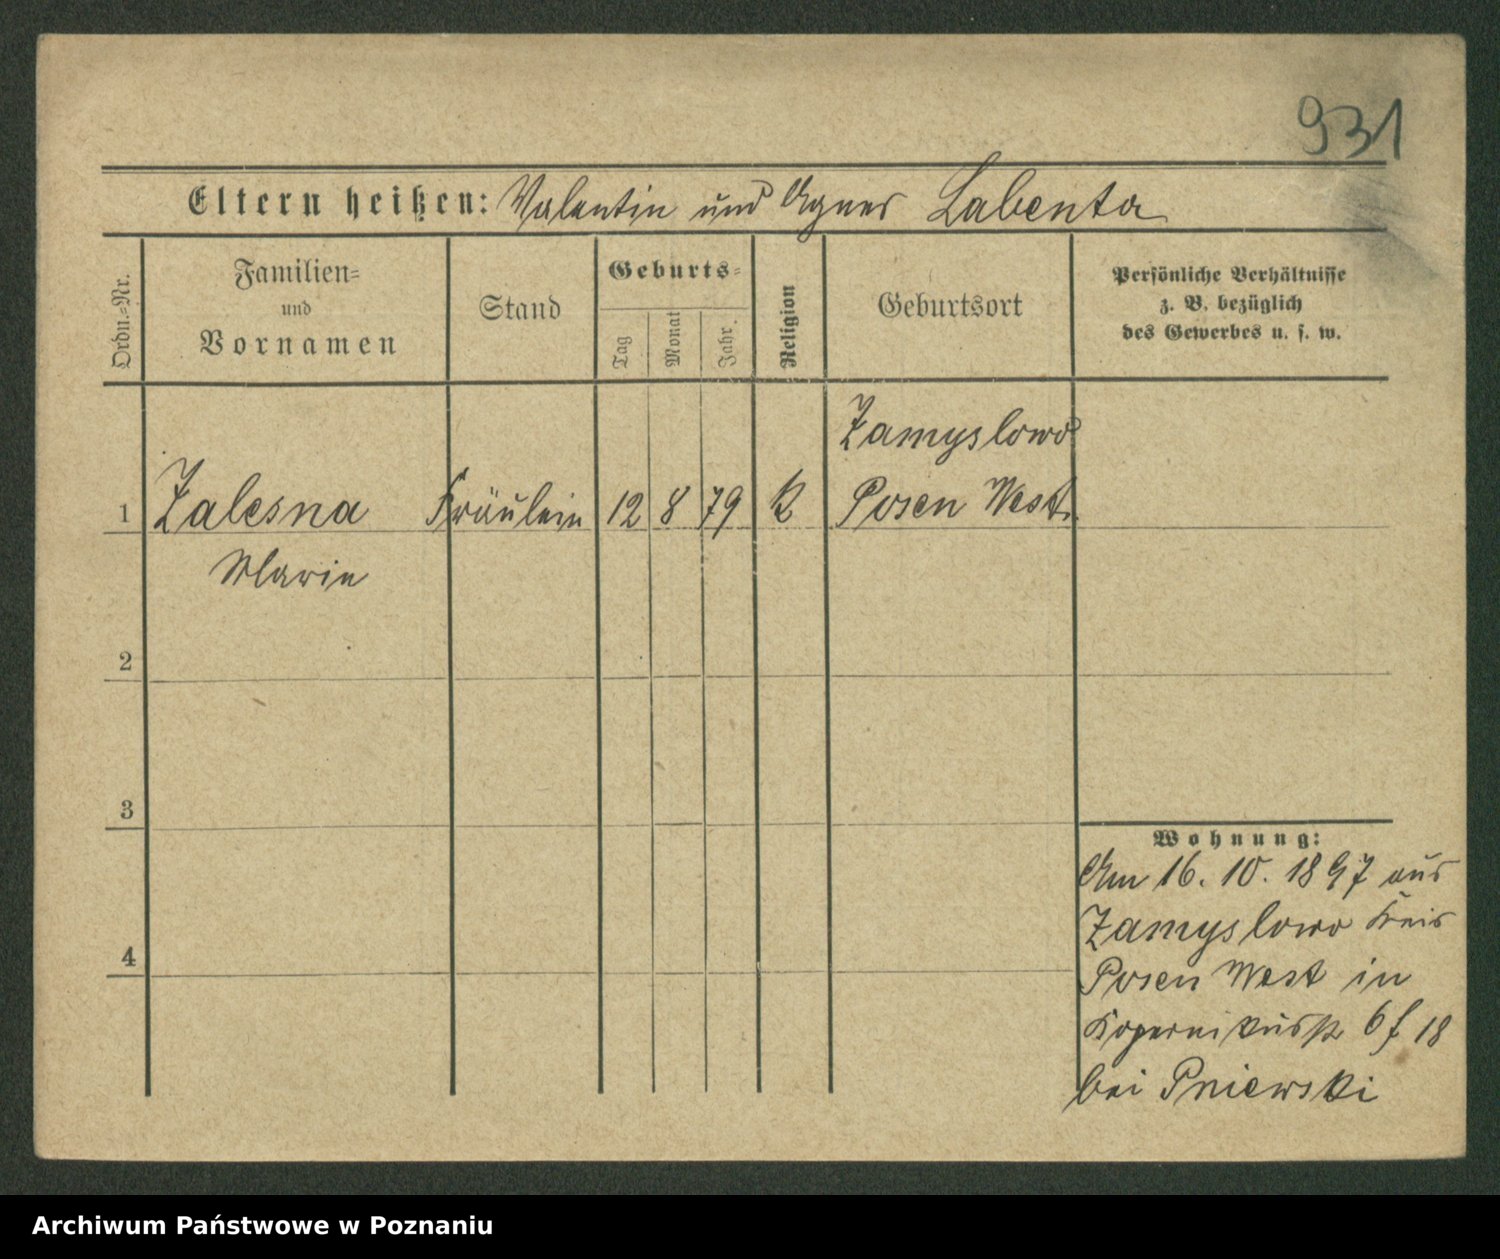 931
Eltern heißen: Valentin und Agnes Labenta
Ordn.-Nr.
Familien-
und
Vornamen
Stand
Geburts-
Tag
Monat
Jahr.
Religion
Geburtsort
Persönliche Verhältnisse
z. B. bezüglich
des Gewerbes u. s. w.
Zamyslowo
1 Zalesna Fräulein 12 8 79 K Posen West.
Marie
2
3
4
Wohnung:
Am 16. 10. 1897 aus
Zamyslowo Kreis
Posen West in
Kopernikusstr 6 18
bei Pniewski
Archiwum Państwowe w Poznaniu